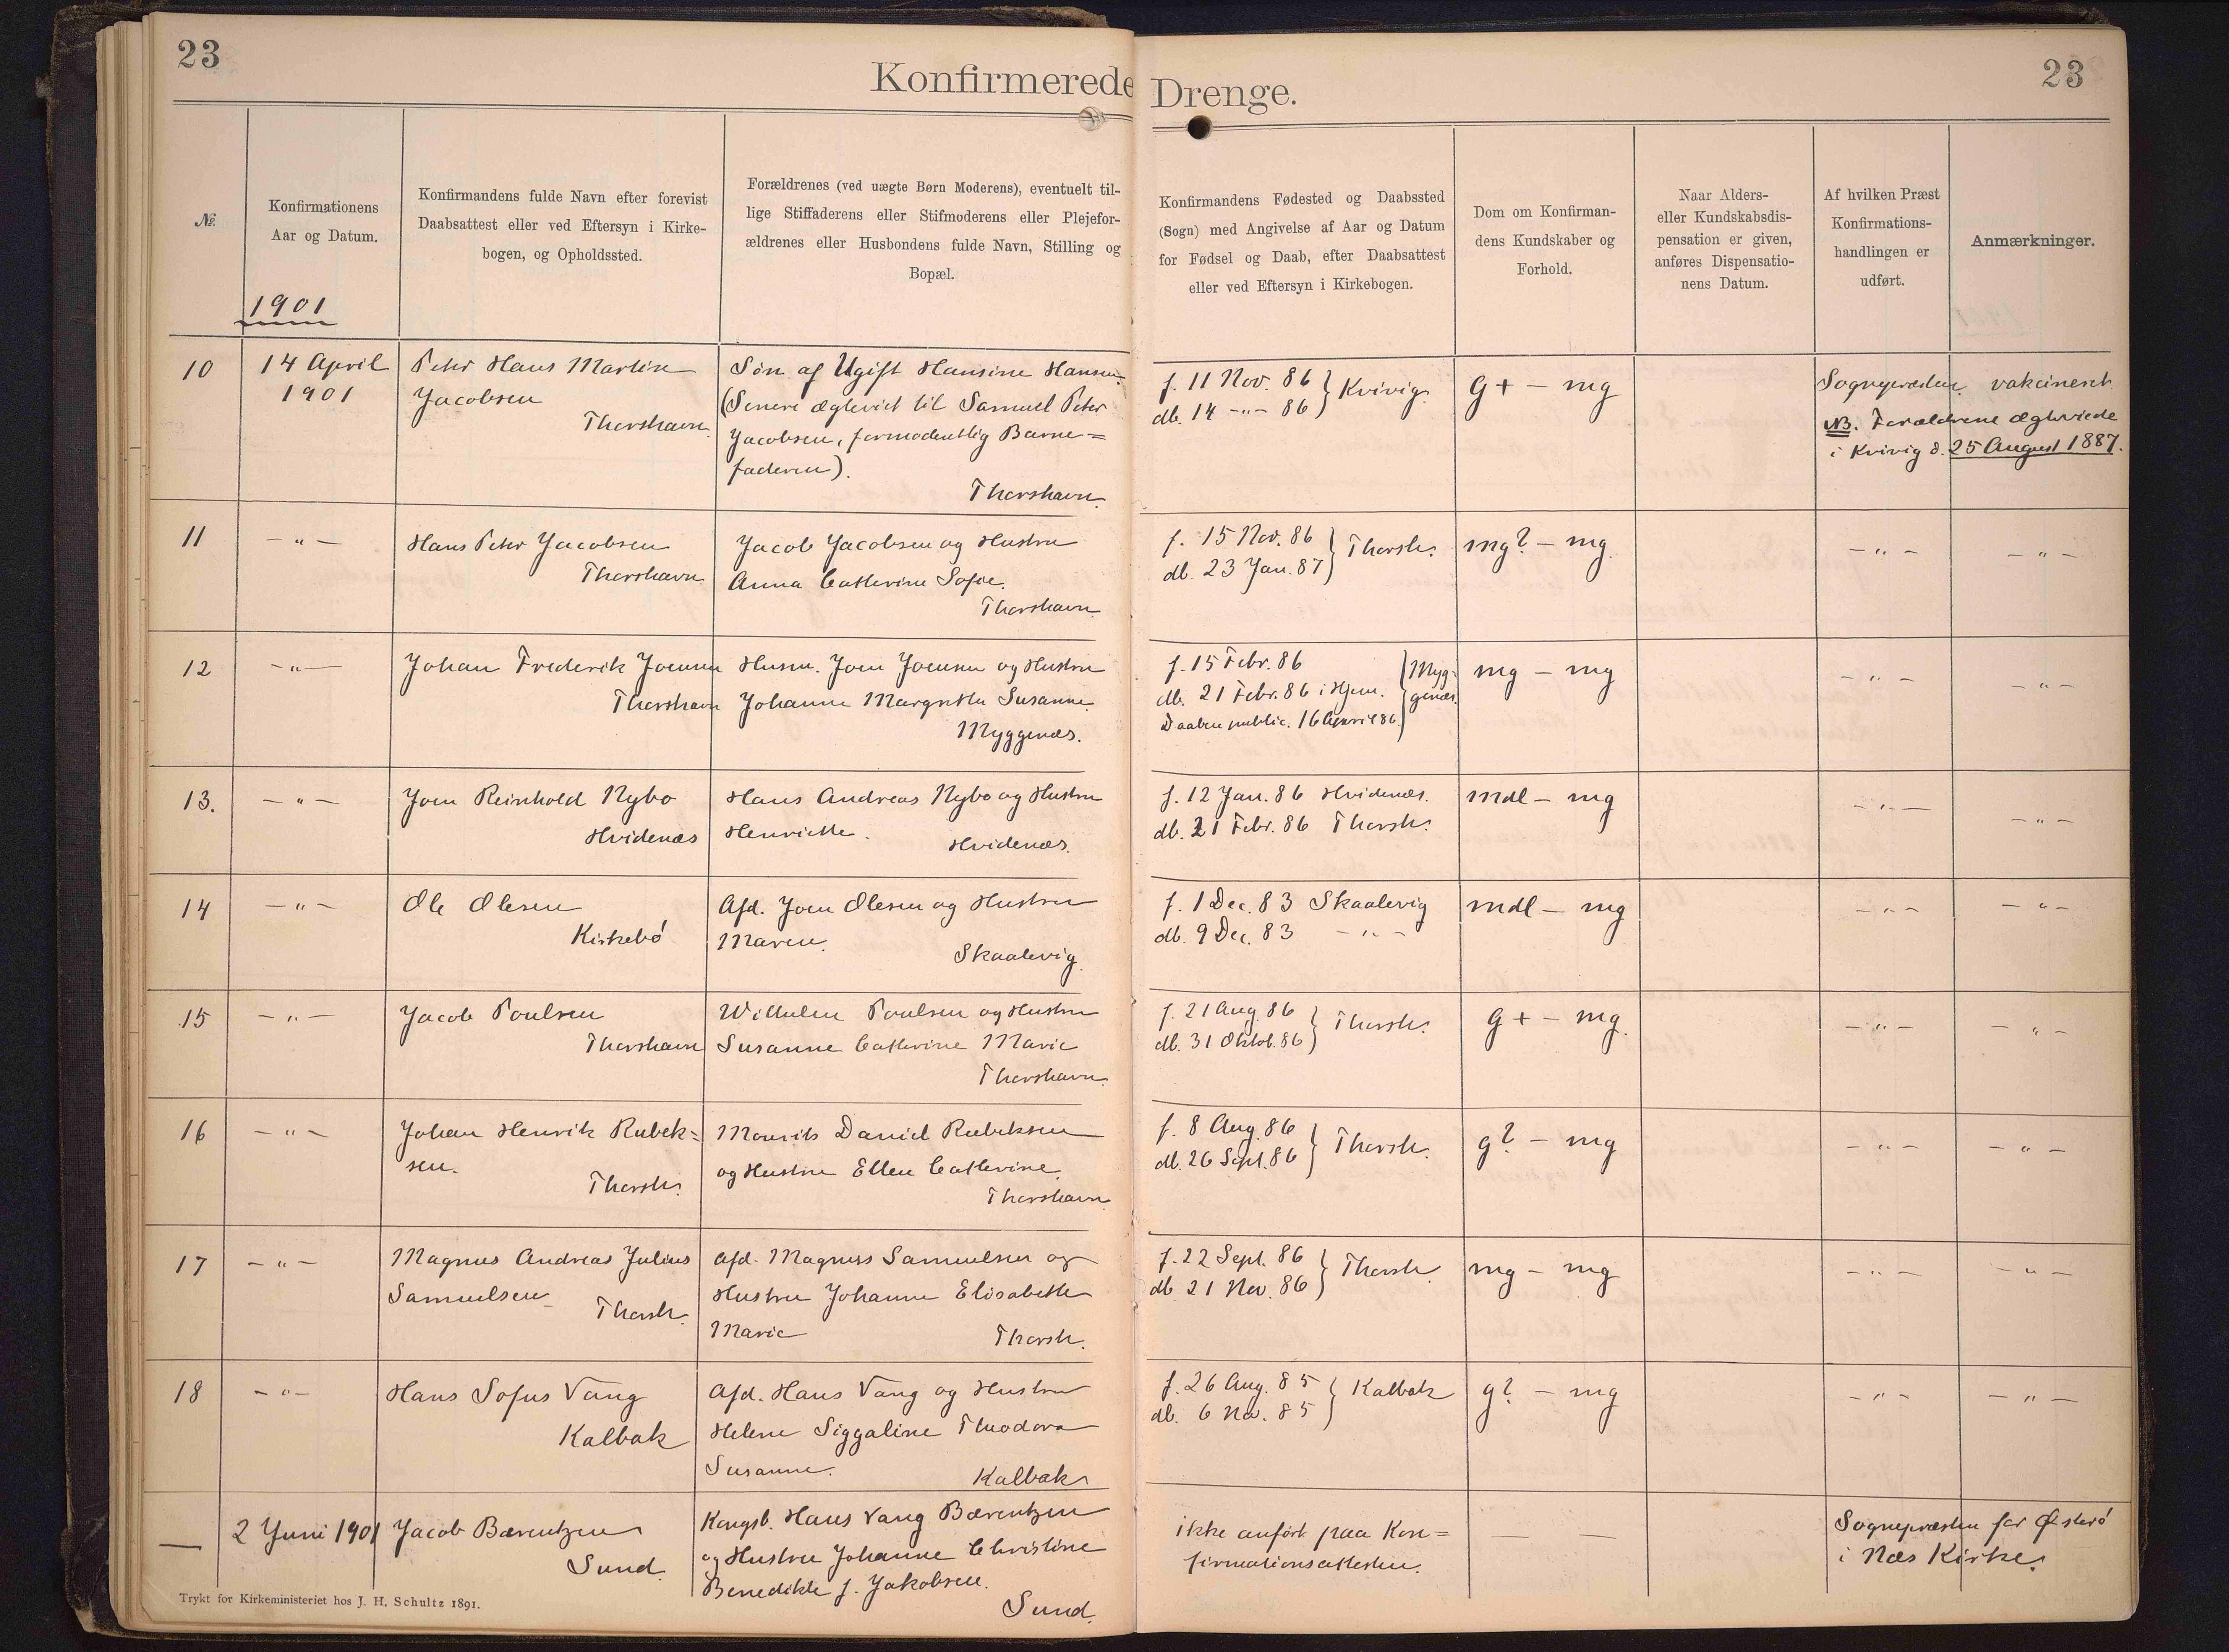 23
23
Konfirmerede Drenge.
№.
Konfirmationens
Aar og Datum.
1901
Konfirmandens fulde Navn efter forevist
Daabsattest eller ved Eftersyn i Kirke-
bogen, og Opholdssted.
Forældrenes (ved uægte Børn Moderens), eventuelt til-
lige Stiffaderens eller Stifmoderens eller Plejefor-
ældrenes eller Husbondens fulde Navn, Stilling og
Bopæl.
Konfirmandens Fødested og Daabssted
(Sogn) med Angivelse af Aar og Datum
for Fødsel og Daab, efter Daabsattest
eller ved Eftersyn i Kirkebogen.
Dom om Konfirman-
dens Kundskaber og
Forhold.
Naar Alders-
eller Kundskabsdis-
pensation er given,
anføres Dispensatio-
nens Datum.
Af hvilken Præst
Konfirmations-
handlingen er
udført.
Anmærkninger.
10
14 April
1901
Peter Hans Martin
Jacobsen
Thorshavn.
Søn af Ugift Hansine Hansen.
(Senere ægteviet til Samuel Peter
Jacobsen, formodentlig Barne=
faderen).
Thorshavn.
f. 11 Nov. 86
db. 14 -"- 86
Kvivig.
g+ - mg
Sognepræsten.
vakcineret.
NB. Forældrene ægteviede
i Kvivig d. 25 August 1887.
11
-"-
Hans Peter Jacobsen
Thorshavn
Jacob Jacobsen og Hustru
Anna Cathrine Sofie.
Thorshavn
f. 15 Nov. 86
db. 23 Jan. 87
Thorsh.
mg? - mg.
-"-
-"-
12
-"-
Johan Frederik Joensen
Thorshavn
Husm. Joen Joensen og Hustru
Johanne Margretha Susanne.
Myggenæs.
f. 15 Febr. 86
db. 21 Febr. 86 i Hjem.
Daaben public. 16 April 86.
Myg-
genæs.
mg - mg
-"-
-"-
13.
-"-
Joen Reinhold Nybo
Hvidenæs
Hans Andreas Nybo og Hustru
Henriette.
Hvidenæs.
f. 12 Jan. 86 Hvidenæs.
db. 21 Febr. 86 Thorsh.
mdl - mg
-"-
-"-
14
-"-
Ole Olesen
Kirkebö
Afd. Joen Olesen og Hustru
Maren.
Skaalevig.
f. 1 Dec. 83 Skaalevig
db. 9 Dec. 83 -"-
mdl - mg
-"-
-"-
15
-"-
Jacob Poulsen
Thorshavn
Wilhelm Poulsen og Hustru
Susanne Cathrine Marie
Thorshavn.
f. 21 Aug. 86
db. 31 Oktob. 86
Thorsh.
g+ - mg.
-"-
-"-
16
-"-
Johan Henrik Rubek=
sen.
Thorsh.
Mourits Daniel Rubeksen
og Hustru Ellen Cathrine.
Thorshavn.
f. 8 Aug. 86
db. 26 Sept. 86
Thorsh.
g? - mg
-"-
-"-
17
-"-
Magnus Andreas Julius
Samuelsen
Thorsh.
Afd. Magnus Samuelsen og
Hustru Johanne Elisabeth
Marie
Thorsh.
f. 22 Sept. 86
db. 21 Nov. 86
Thorsh.
mg - mg
-"-
-"-
18
-"-
Hans Sofus Vang
Kalbak
Afd. Hans Vang og Hustru
Helene Siggaline Theodora
Susanne.
Kalbak
f. 26 Aug. 85
db. 6 Nov. 85
Kalbak
g? - mg
-"-
-"-
—
2 Juni 1901
Jacob Bærentzen
Sund.
Kongsb. Hans Vang Bærentzen
og Hustru Johanne Christine
Benedikte f. Jakobsen.
Sund.
ikke anført paa Kon=
firmationsattesten.
— —
Sognepræsten for Østerö
i Næs Kirke.
Trykt for Kirkeministeriet hos J. H. Schultz 1891.